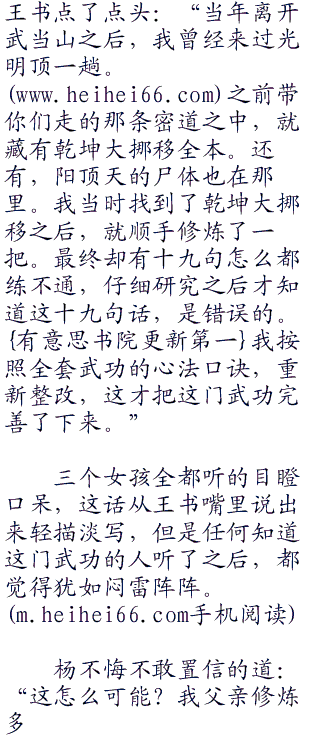 王书点了点头：“当年离开
武当山之后，我曾经来过光
明顶一趟。
(www.heihei66.com)之前带
你们走的那条密道之中，就
藏有乾坤大挪移全本。还
有，阳顶天的尸体也在那
里。我当时找到了乾坤大挪
移之后，就顺手修炼了一
把。最终却有十九句怎么都
练不通，仔细研究之后才知
道这十九句话，是错误的。
{有意思书院更新第一}我按
照全套武功的心法口诀，重
新整改，这才把这门武功完
善了下来。”
三个女孩全都听的目瞪
口呆，这话从王书嘴里说出
来轻描淡写，但是任何知道
这门武功的人听了之后，都
觉得犹如闷雷阵阵。
(m.heihei66.com手机阅读)
杨不悔不敢置信的道：
“这怎么可能？我父亲修炼
多